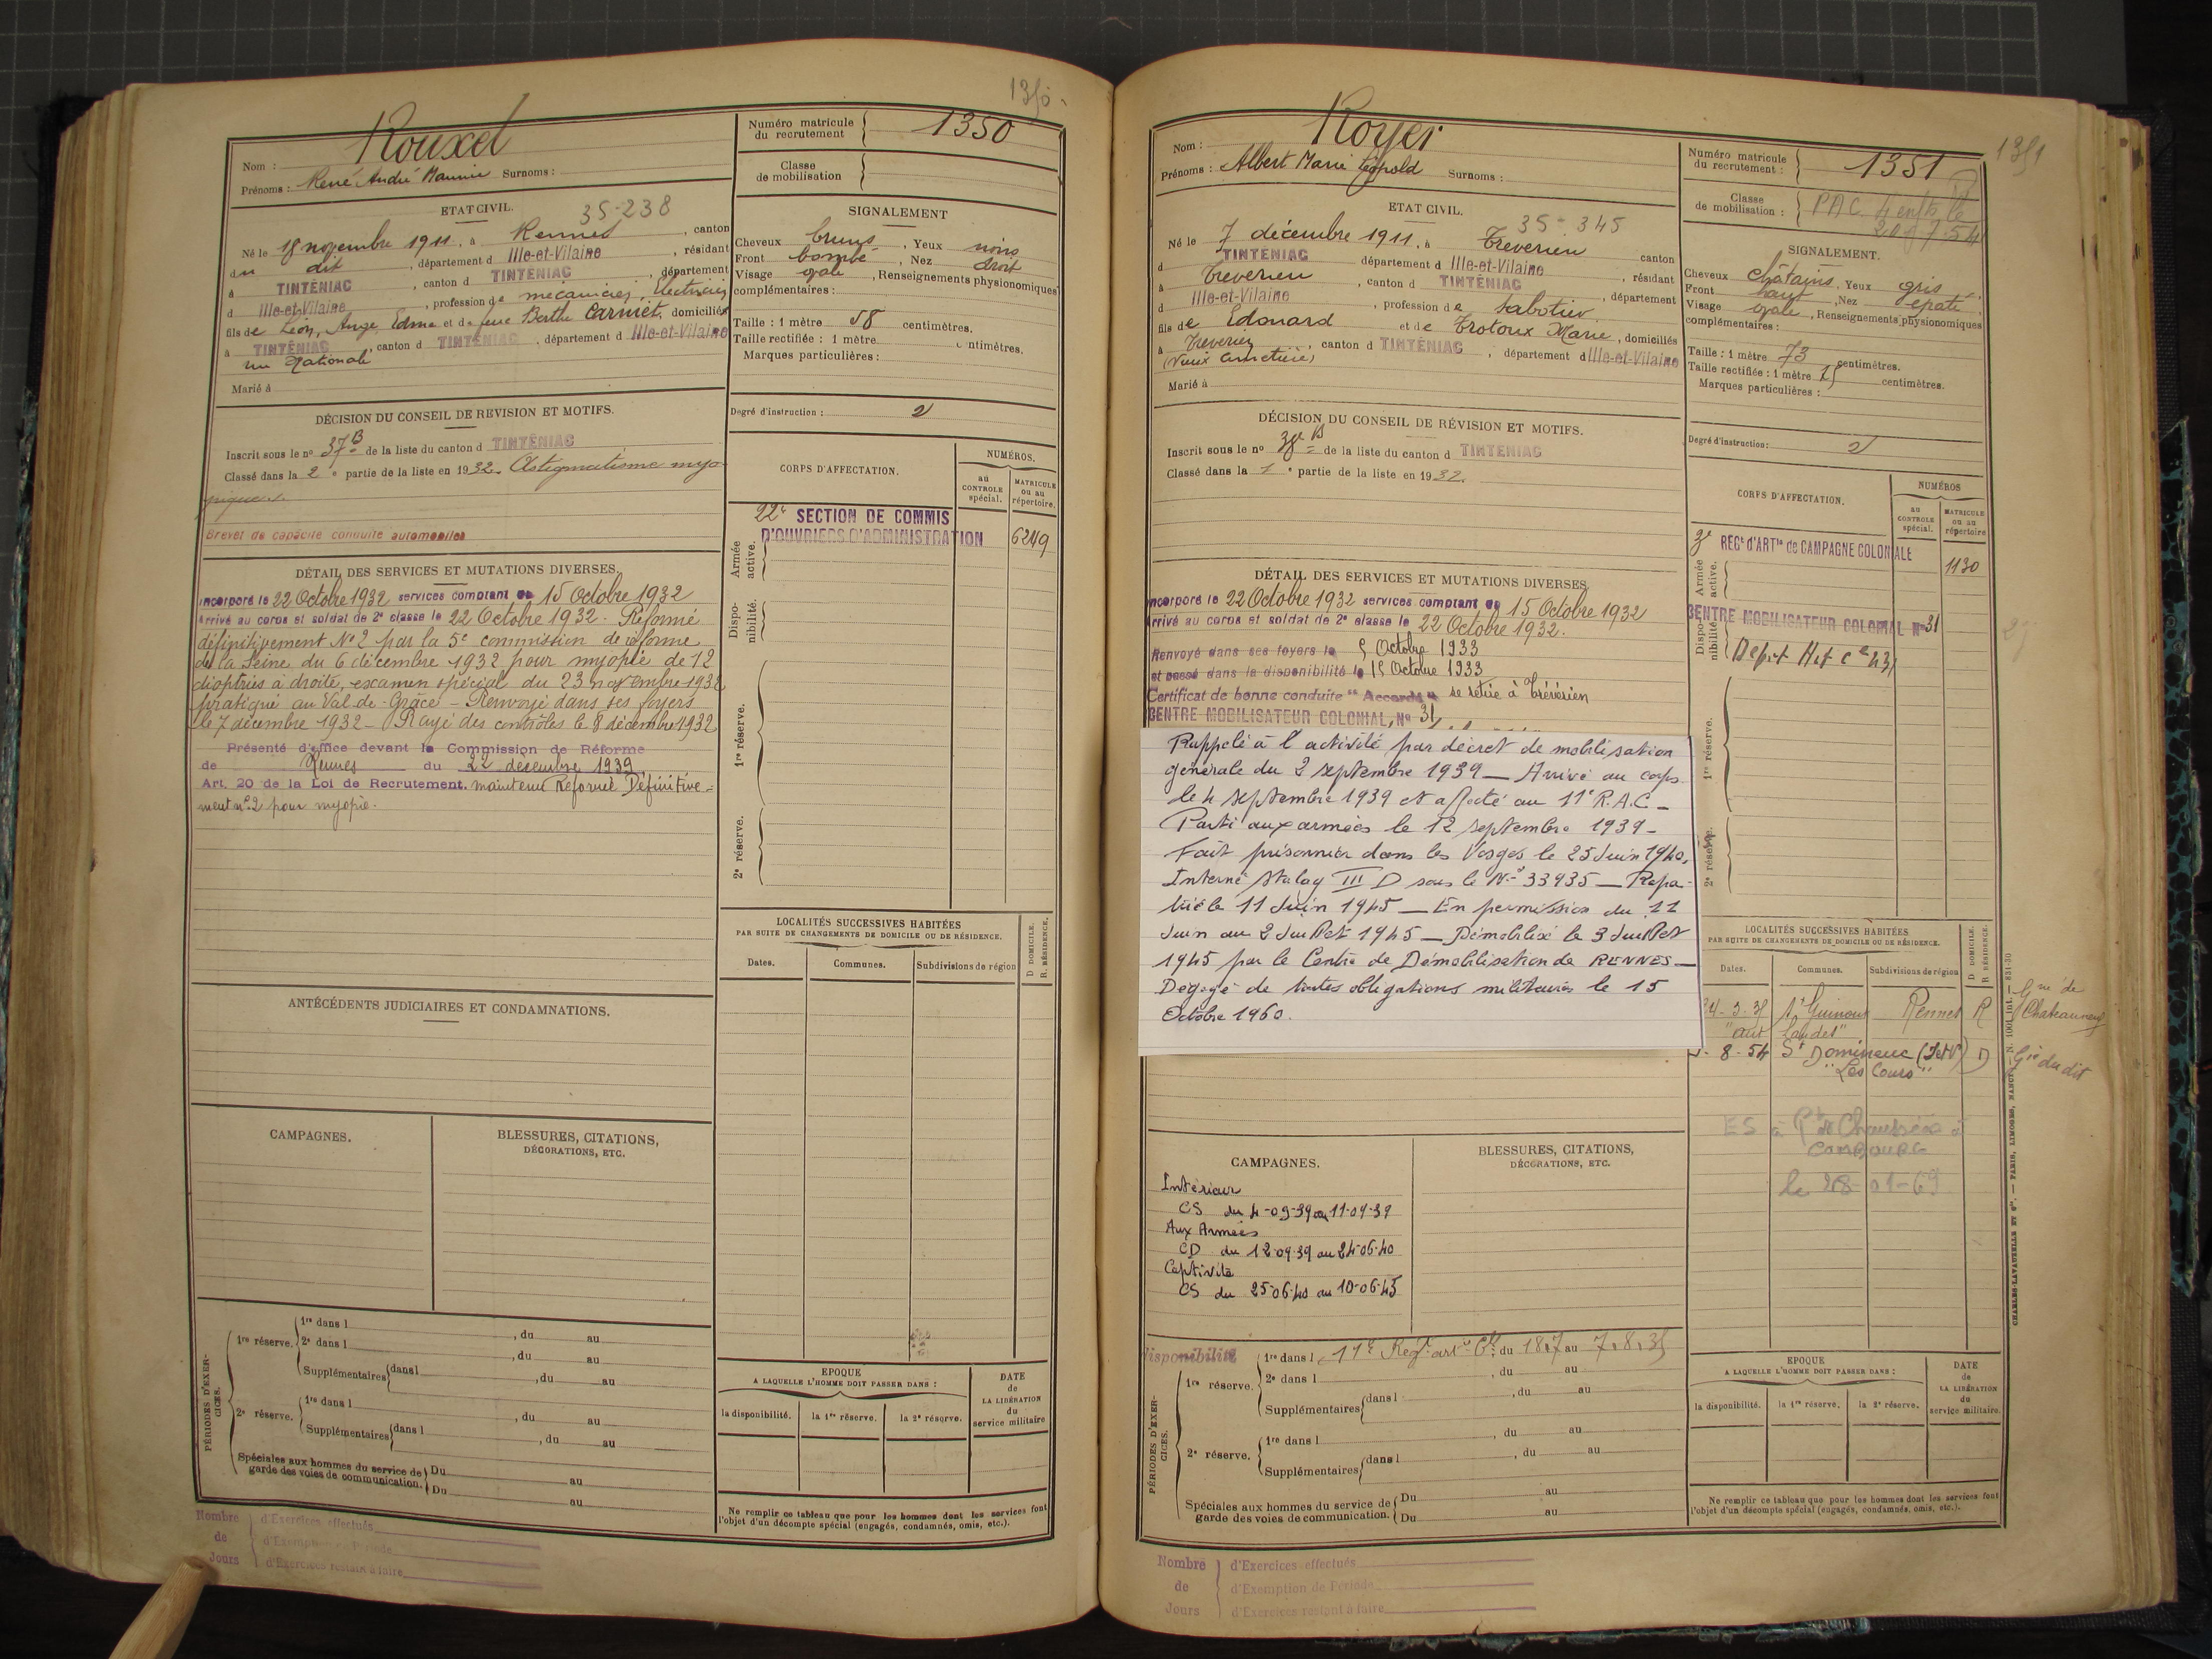 1350
Nom : Rouxel
Prénoms : René André Maurice Surnoms :
Numéro matricule du recrutement 1350
Classe de mobilisation
ETAT CIVIL.
35-238
Né le 18 novembre 1911, à Rennes, canton
du dit, département d Ille-et-Vilaine, résidant
à TINTÉNIAC, canton d TINTÉNIAC, département
d Ille-et-Vilaine, profession de mécanicien, Electricien
fils de Léon, Ange, Edma et de feue Berthe Carniet, domiciliés
à TINTÉNIAC, canton d TINTÉNIAC, département d Ille-et-Vilaine
rue Nationale
Marié à
SIGNALEMENT
Cheveux bruns, Yeux noirs
Front bombé, Nez droit
Visage ovale, Renseignements physionomiques
complémentaires :
Taille : 1 mètre 58 centimètres.
Taille rectifiée : 1 mètre centimètres.
Marques particulières :
Degré d'instruction : 2
DÉCISION DU CONSEIL DE REVISION ET MOTIFS.
Inscrit sous le nº 37 B de la liste du canton d TINTÉNIAC
Classé dans la 2e partie de la liste en 1932. Astigmatisme myo-
pique
Brevet de capacité conduite automobiles
CORPS D'AFFECTATION.
NUMÉROS.
au CONTROLE spécial.
MATRICULE ou au répertoire.
Armée active.
22e SECTION DE COMMIS
D'OUVRIERS D'ADMINISTRATION
6249
Disponibilité.
1re réserve.
2e réserve.
DÉTAIL DES SERVICES ET MUTATIONS DIVERSES.
Incorporé le 22 Octobre 1932 services comptant du 15 Octobre 1932
Arrivé au corps et soldat de 2e classe le 22 Octobre 1932. Réformé
définitivement Nº 2 par la 5e commission de réforme
de la Seine du 6 décembre 1932 pour myopie de 12
dioptries à droite, examen spécial du 23 novembre 1932
pratiqué au Val-de-Grâce - Renvoyé dans ses foyers
le 7 décembre 1932 - Rayé des contrôles le 8 décembre 1932
Présenté d'office devant la Commission de Réforme
de Rennes du 22 décembre 1939
Art. 20 de la Loi de Recrutement. maintenu Réformé Définitive-
ment nº 2 pour myopie.
LOCALITÉS SUCCESSIVES HABITÉES
PAR SUITE DE CHANGEMENTS DE DOMICILE OU DE RÉSIDENCE.
Dates.
Communes.
Subdivisions de région
D DOMICILE.
R. RÉSIDENCE.
ANTÉCÉDENTS JUDICIAIRES ET CONDAMNATIONS.
CAMPAGNES.
BLESSURES, CITATIONS,
DÉCORATIONS, ETC.
PÉRIODES D'EXERCICES.
1re réserve. 1re dans l, du au
2e dans l, du au
Supplémentaires dans l, du au
2e réserve. 1re dans l, du au
Supplémentaires dans l, du au
Spéciales aux hommes du service de garde des voies de communication. Du au
Du au
EPOQUE
A LAQUELLE L'HOMME DOIT PASSER DANS :
la disponibilité.
la 1re réserve.
la 2e réserve.
DATE de LA LIBÉRATION du service militaire
Ne remplir ce tableau que pour les hommes dont les services font
l'objet d'un décompte spécial (engagés, condamnés, omis, etc.).
Nombre de Jours
d'Exercices effectués
d'Exemption de Période
d'Exercices restant à faire
1351
Nom : Royer
Prénoms : Albert Marie Léopold Surnoms :
Numéro matricule du recrutement : 1351
Classe de mobilisation : PAC. 4 enfts le
20.7.54
ETAT CIVIL.
35-345
Né le 7 décembre 1911, à Treverien canton
d TINTÉNIAC département d Ille-et-Vilaine, résidant
à Treverien, canton d TINTÉNIAC, département
d Ille-et-Vilaine, profession de sabotier
fils de Edouard et de Trotoux Marie, domiciliés
à Treverien, canton d TINTÉNIAC, département d Ille-et-Vilaine
(Vieux Cimetière)
Marié à
SIGNALEMENT.
Cheveux châtains, Yeux gris
Front haut, Nez épaté
Visage ovale, Renseignements physionomiques
complémentaires :
Taille : 1 mètre 73 centimètres.
Taille rectifiée : 1 mètre centimètres.
Marques particulières :
Degré d'instruction : 2
DÉCISION DU CONSEIL DE RÉVISION ET MOTIFS.
Inscrit sous le nº 38 B de la liste du canton d TINTÉNIAC
Classé dans la 1e partie de la liste en 1932.
CORPS D'AFFECTATION.
NUMÉROS
au CONTROLE spécial.
MATRICULE ou au répertoire
Armée active.
3e RÉGt d'ARTie de CAMPAGNE COLONIALE
1130
Disponibilité.
CENTRE MOBILISATEUR COLONIAL Nº 31
1re réserve.
2e réserve.
DÉTAIL DES SERVICES ET MUTATIONS DIVERSES
Incorporé le 22 Octobre 1932 services comptant du 15 Octobre 1932
Arrivé au corps et soldat de 2e classe le 22 Octobre 1932.
Renvoyé dans ses foyers le 5 Octobre 1933
et passé dans la disponibilité le 15 Octobre 1933
Certificat de bonne conduite "Accordé" se retire à Trévérien
CENTRE MOBILISATEUR COLONIAL, Nº 31
Rappelé à l'activité par décret de mobilisation
générale du 2 septembre 1939 — Arrivé au corps
le 4 septembre 1939 et affecté au 11e R.A.C. —
Parti aux armées le 12 septembre 1939 —
Fait prisonnier dans les Vosges le 25 Juin 1940,
Interné Stalag III D sous le Nº 33935 — Rapa-
trié le 11 Juin 1945 — En permission du 11
Juin au 2 Juillet 1945 — Démobilisé le 3 Juillet
1945 par le Centre de Démobilisation de RENNES —
Dégagé de toutes obligations militaires le 15
Octobre 1960.
LOCALITÉS SUCCESSIVES HABITÉES
PAR SUITE DE CHANGEMENTS DE DOMICILE OU DE RÉSIDENCE.
Dates.
Communes.
Subdivisions de région
D DOMICILE.
R RÉSIDENCE.
St Guinoux Rennes R
8-54 St Domineuc (I et V) D
"Les Cours"
le 28-01-69
CAMPAGNES.
Intérieur
CS du 4-09-39 au 11-09-39
Aux Armées
CD du 12-09-39 au 24-06-40
Captivité
CS du 25-06-40 au 10-06-45
BLESSURES, CITATIONS,
DÉCORATIONS, ETC.
disponibilité
PÉRIODES D'EXERCICES.
1re réserve. 1re dans l 11e Régt art Cle du 18.7 au 7.8.35
2e dans l, du au
Supplémentaires dans l, du au
2e réserve. 1re dans l, du au
Supplémentaires dans l, du au
Spéciales aux hommes du service de garde des voies de communication. Du au
Du au
EPOQUE
A LAQUELLE L'HOMME DOIT PASSER DANS :
la disponibilité.
la 1re réserve.
la 2e réserve.
DATE de LA LIBÉRATION du service militaire.
Ne remplir ce tableau que pour les hommes dont les services font
l'objet d'un décompte spécial (engagés, condamnés, omis, etc.).
CHARLES-LAVAUZELLE ET Cie. — PARIS, LIMOGES, NANCY
Nombre de Jours
d'Exercices effectués
d'Exemption de Période
d'Exercices restant à faire